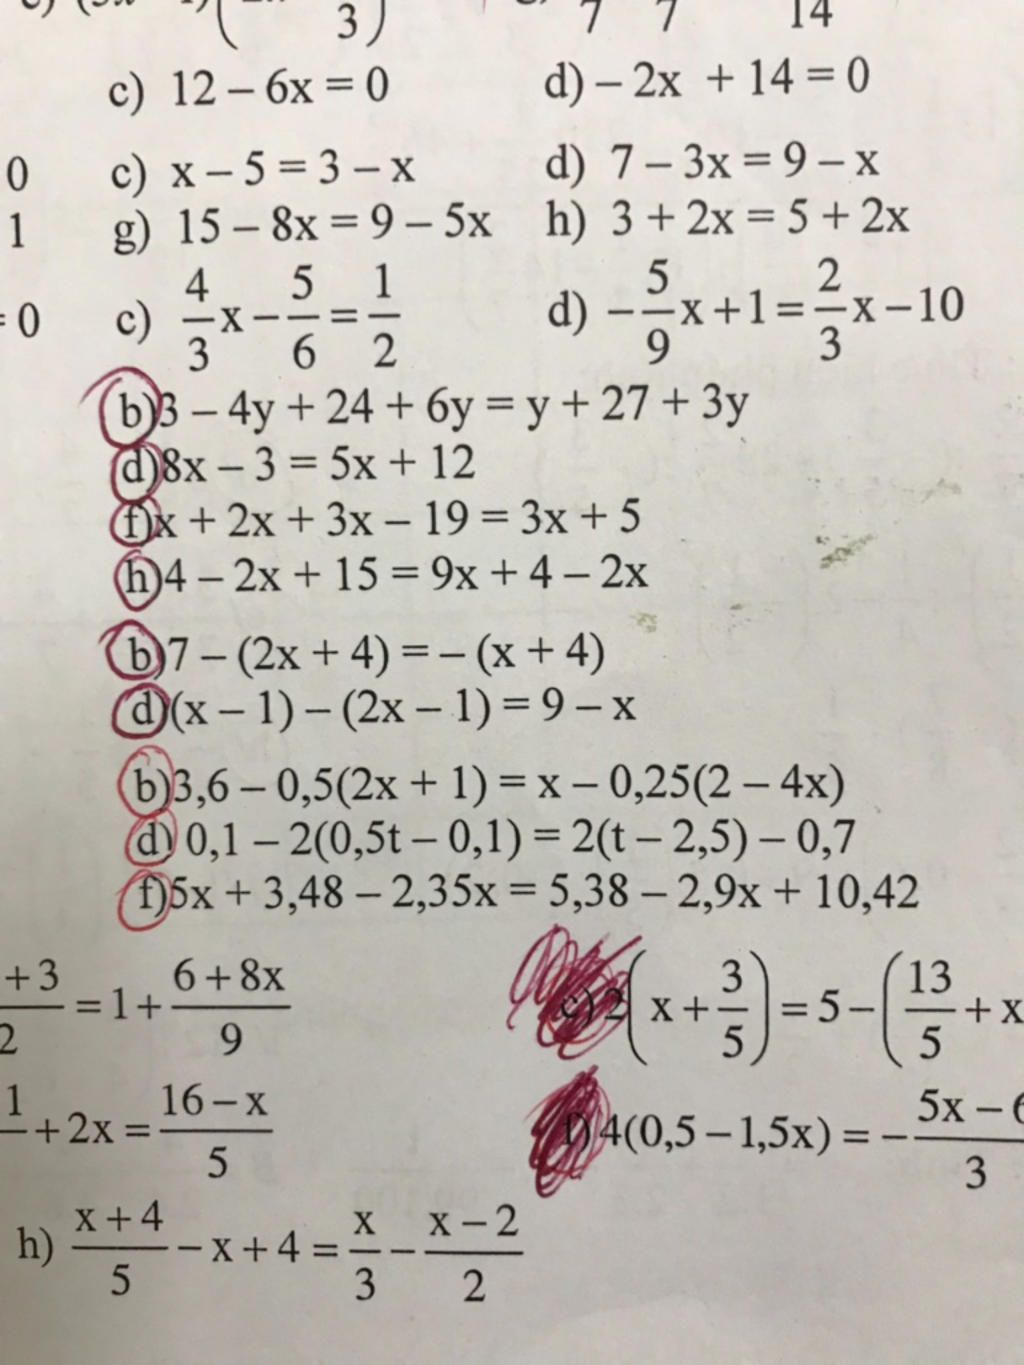 3) 7 7 14
c) 12 – 6x = 0 d) – 2x + 14 = 0
0 c) x – 5 = 3 – x d) 7 – 3x = 9 – x
1 g) 15 – 8x = 9 – 5x h) 3 + 2x = 5 + 2x
= 0 c) 4/3 x – 5/6 = 1/2 d) – 5/9 x + 1 = 2/3 x – 10
b) 3 – 4y + 24 + 6y = y + 27 + 3y
d) 8x – 3 = 5x + 12
f) x + 2x + 3x – 19 = 3x + 5
h) 4 – 2x + 15 = 9x + 4 – 2x
b) 7 – (2x + 4) = – (x + 4)
d) (x – 1) – (2x – 1) = 9 – x
b) 3,6 – 0,5(2x + 1) = x – 0,25(2 – 4x)
d) 0,1 – 2(0,5t – 0,1) = 2(t – 2,5) – 0,7
f) 5x + 3,48 – 2,35x = 5,38 – 2,9x + 10,42
+ 3 / 2 = 1 + (6 + 8x)/9 c) 2(x + 3/5) = 5 – (13/5 + x
1 + 2x = (16 – x)/5 f) 4(0,5 – 1,5x) = – (5x – 6)/3
h) (x + 4)/5 – x + 4 = x/3 – (x – 2)/2